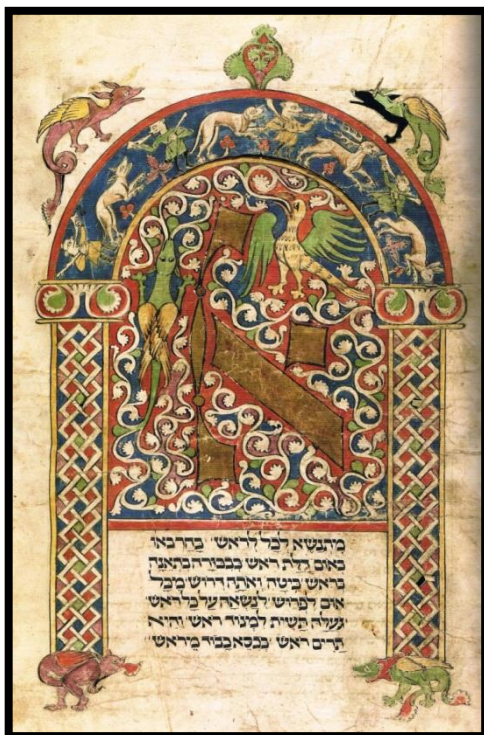 אל
מתנשא לכל לראש׳ בחר באו
באום דלת ראש כבכורה בתאנה
בראש׳ ביטה ואתה דרוש מכל
אום לפריש׳ לנשאה על כל ראש׳
נעלה תשית למנוד ראש׳ והיא
תרים ראש׳ בכסא כבוד מיראש׳